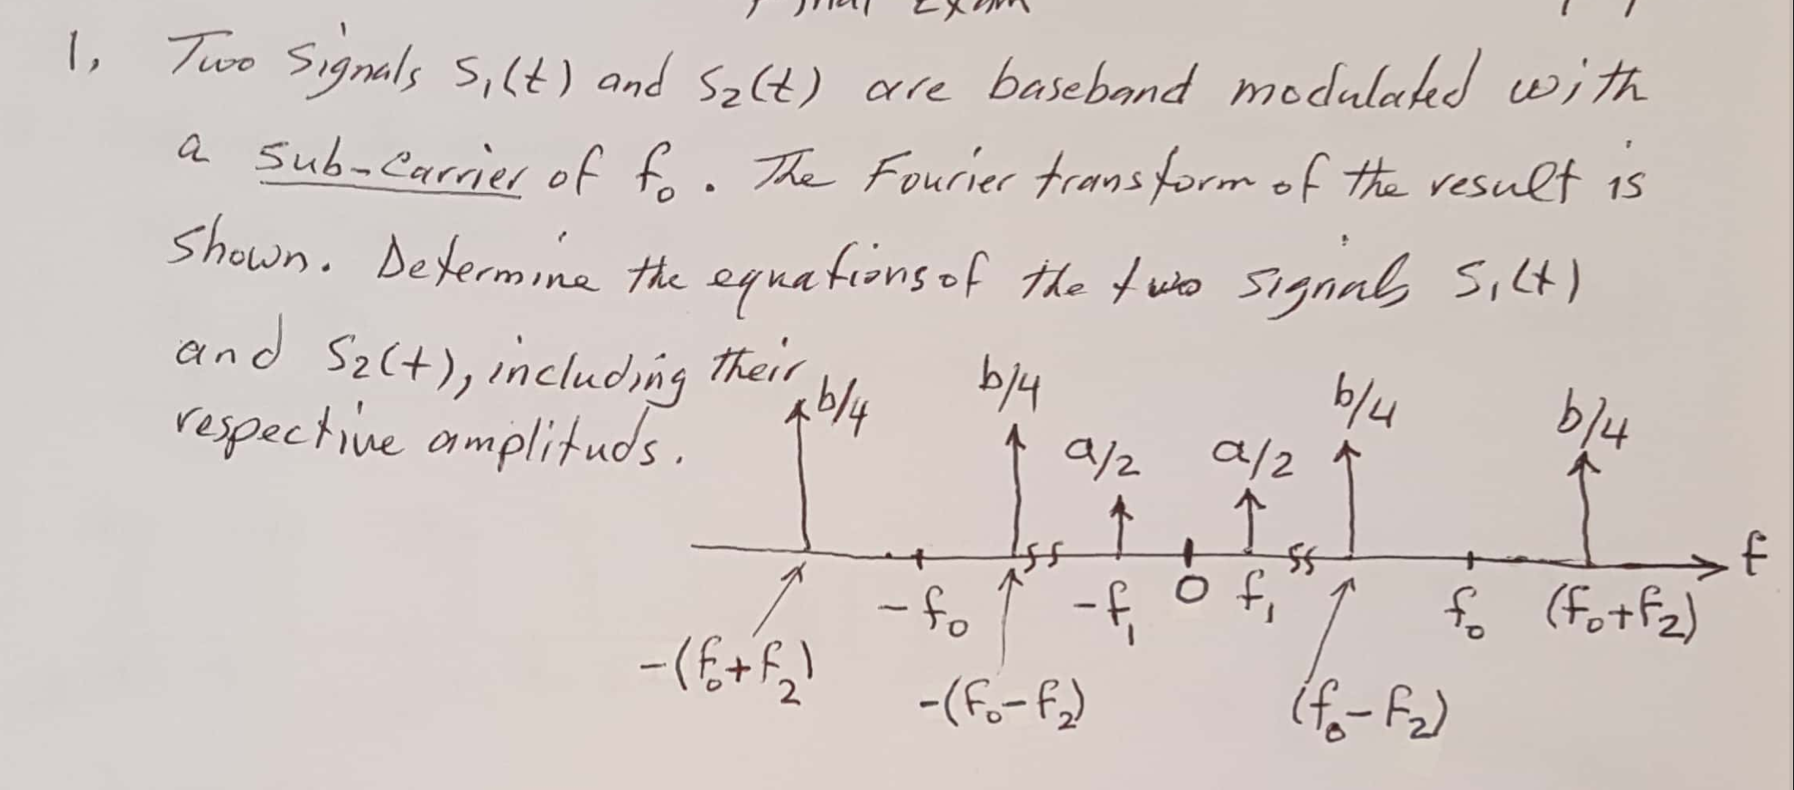 Final Exam
1. Two Signals S₁(t) and S₂(t) are baseband modulated with
a Sub-Carrier of f₀. The Fourier transform of the result is
shown. Determine the equations of the two signals S₁(t)
and S₂(t), including their
respective amplituds.
b/4 b/4 b/4 b/4
a/2 a/2
f
-f₀ -f₁ 0 f₁ f₀ (f₀+f₂)
-(f₀+f₂) -(f₀-f₂) (f₀-f₂)